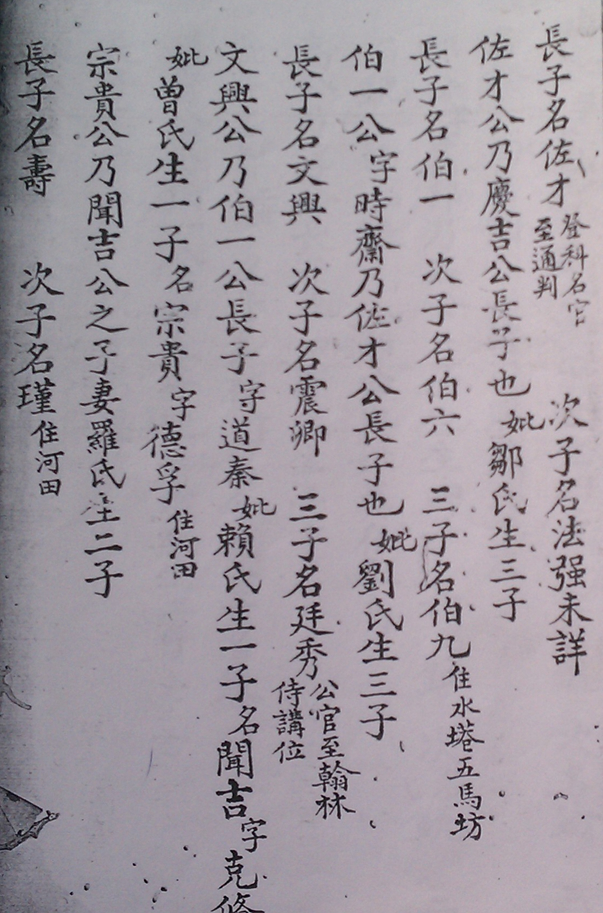 長子名佐才登科名官至通判 次子名法强未詳
佐才公乃慶吉公長子也妣鄒氏生三子
長子名伯一 次子名伯六 三子名伯九住水塔五馬坊
伯一公字時齋乃佐才公長子也妣劉氏生三子
長子名文興 次子名震卿 三子名廷秀公官至翰林侍講位
文興公乃伯一公長子字道泰妣賴氏生一子名聞吉字克修
妣曾氏生一子名宗貴字德孚住河田
宗貴公乃聞吉公之子妻羅氏生二子
長子名壽 次子名瑾住河田